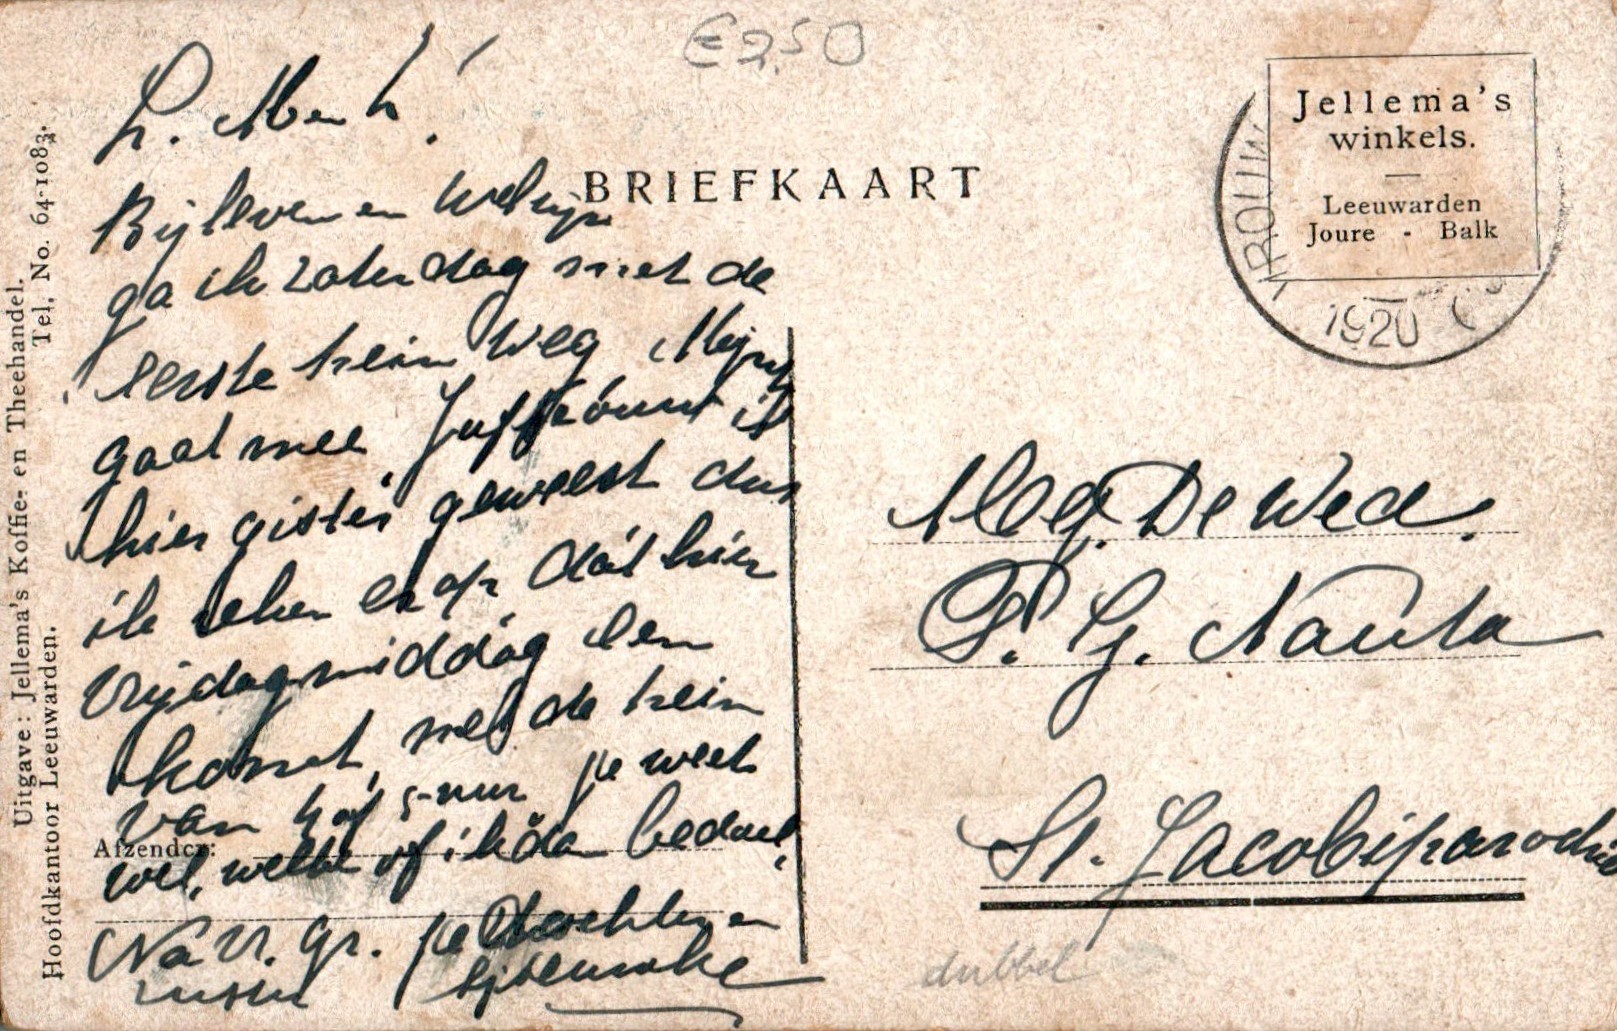 € 2,50
L.
Bij leven en welzijn
ga ik zaterdag met de
eerste trein weg
gaat mee, Juffrouw is
hier gister geweest dus
ik reken er op dat hier
Vrijdagmiddag een
komt, met de trein
van half 5 uur je weet
wel, welke of ik dan bedoel,
Na v. gr. je
BRIEFKAART
Jellema's
winkels.
Leeuwarden
Joure - Balk
VROUW
1920
Uitgave: Jellema's Koffie- en Theehandel.
Hoofdkantoor Leeuwarden. Tel. No. 64-1083.
Afzender:
Mej. De Wed.
P. G. Nauta
St. Jacobiparochie
dubbel